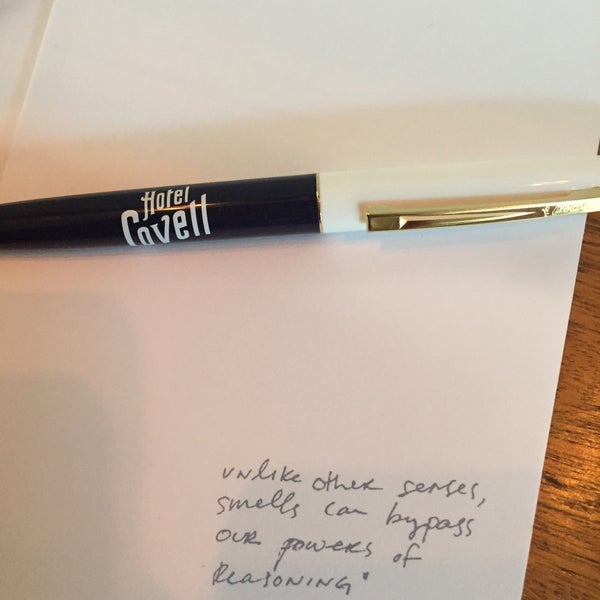 Hotel
Covell
unlike other senses,
smells can bypass
our powers of
Reasoning"